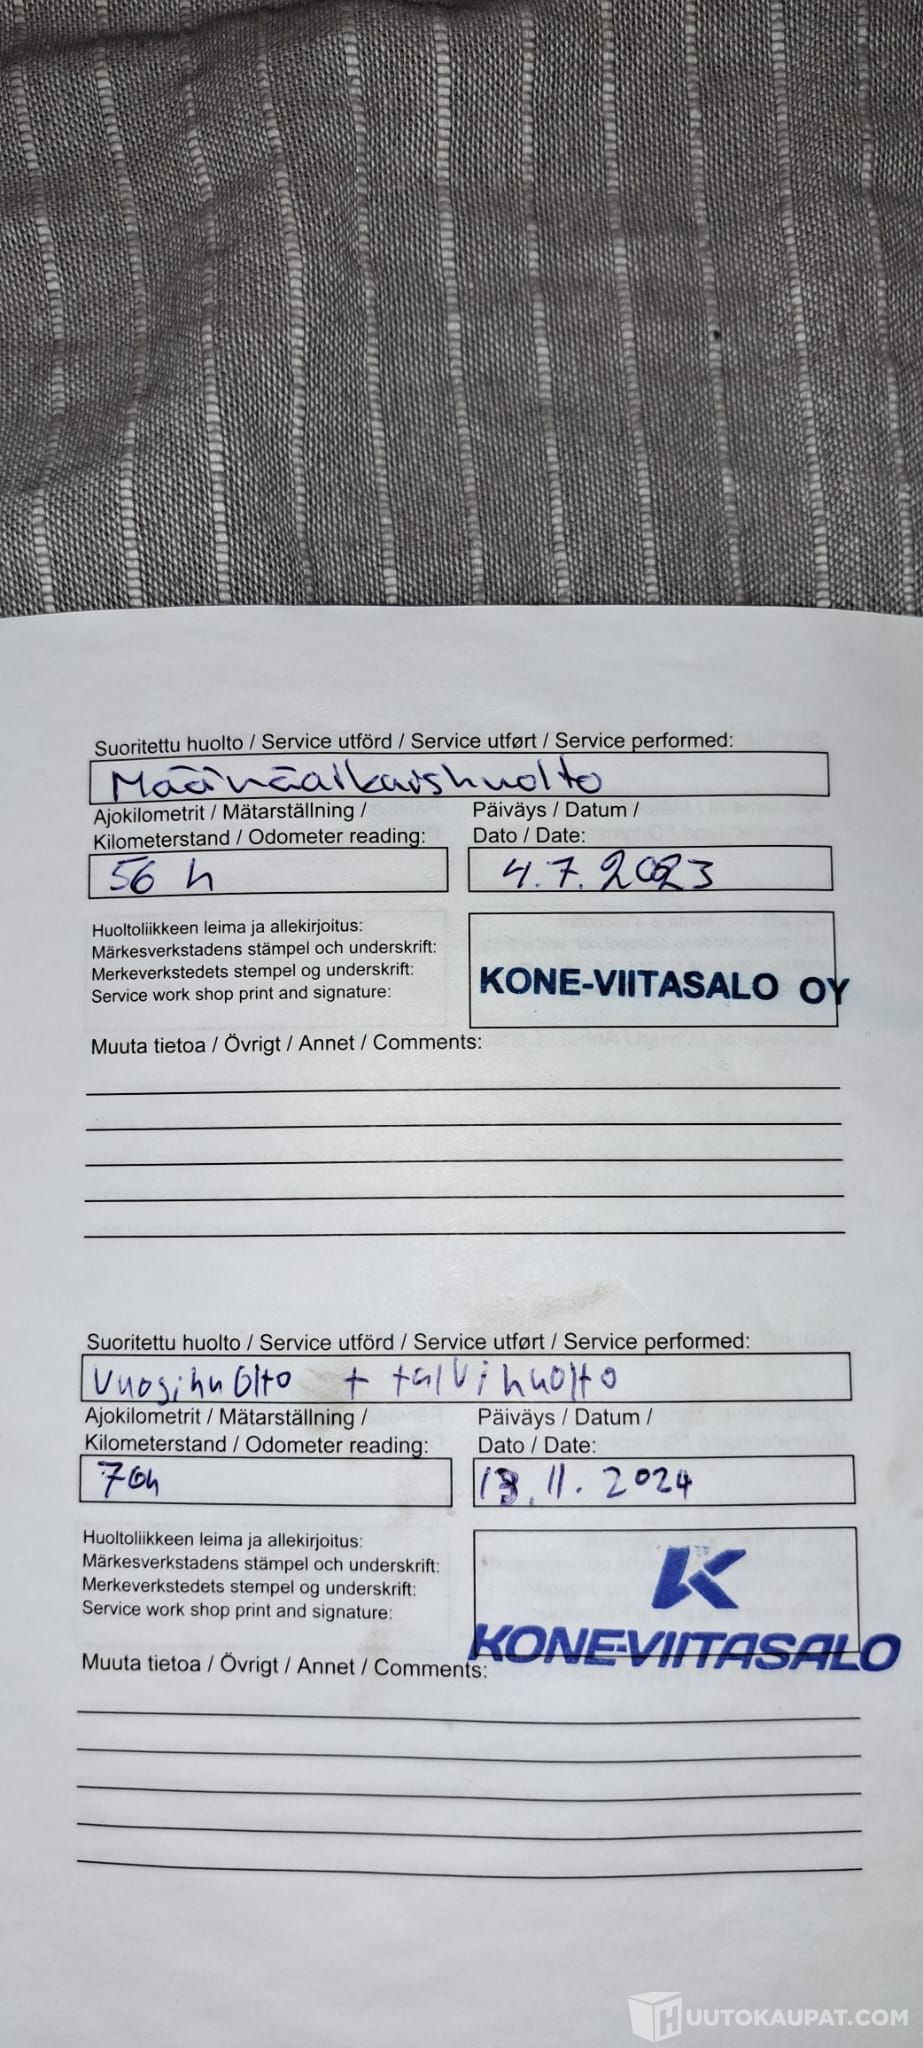 Suoritettu huolto / Service utförd / Service utført / Service performed:
Määräaikaishuolto
Ajokilometrit / Mätarställning /
Kilometerstand / Odometer reading:
Päiväys / Datum /
Dato / Date:
56 h
4.7.2023
Huoltoliikkeen leima ja allekirjoitus:
Märkesverkstadens stämpel och underskrift:
Merkeverkstedets stempel og underskrift:
Service work shop print and signature:
KONE-VIITASALO OY
Muuta tietoa / Övrigt / Annet / Comments:
Suoritettu huolto / Service utförd / Service utført / Service performed:
Vuosihuolto + talvihuolto
Ajokilometrit / Mätarställning /
Kilometerstand / Odometer reading:
Päiväys / Datum /
Dato / Date:
70h
13.11.2024
Huoltoliikkeen leima ja allekirjoitus:
Märkesverkstadens stämpel och underskrift:
Merkeverkstedets stempel og underskrift:
Service work shop print and signature:
K
KONE-VIITASALO
Muuta tietoa / Övrigt / Annet / Comments:
HUUTOKAUPAT.COM